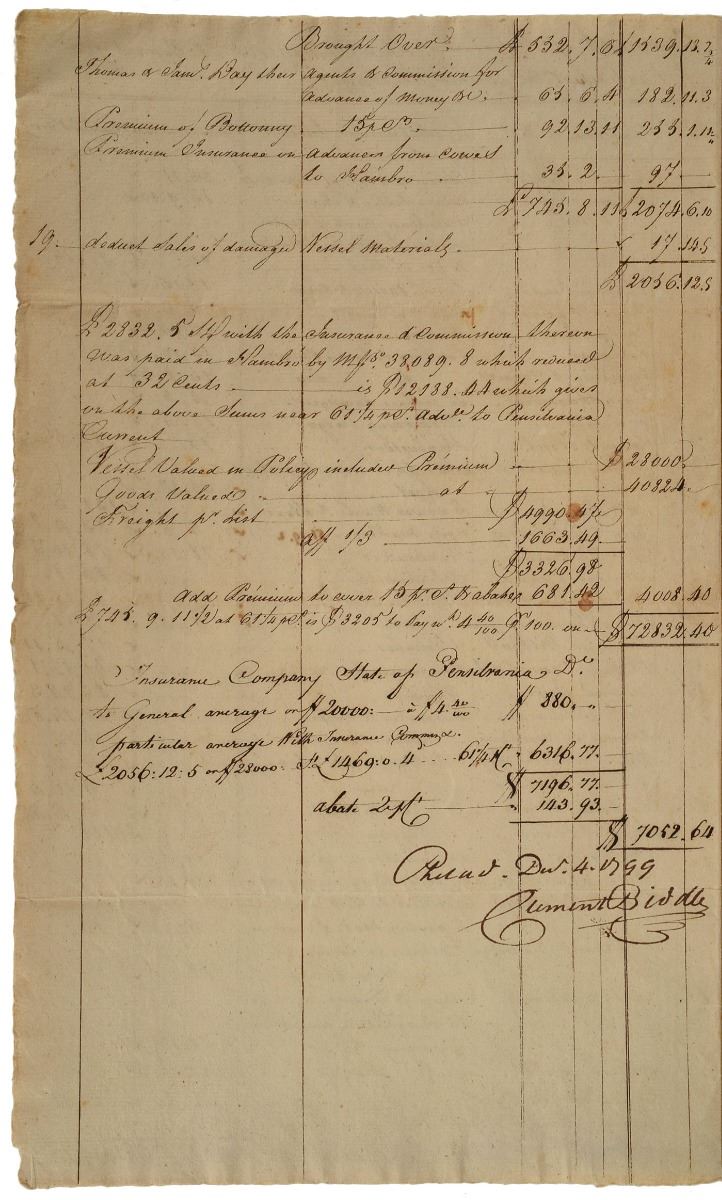 Brought Over £ 552.7.8½ 1539.13.7¾
Thomas & Saml. Day their Agents & Commission for
Advance of Money &c. 65.6.4 182.11.3
Premium of Bottomry 15 p Ct. 92.13.11 255.1.11
Premium Insurance on advances from Cowes
to Hambro 35.2. 97
£ 745.8.11½ 2074.6.10
19. deduct Sales of damaged Vessel Materials. 17.14.5
£ 2056.12.5
£2832.5 with the Insurance & Commission thereon
was paid in Hambro by 38089.8 which reduced
at 32 Cents is $12188.44 which gives
on the above Sums near 61¼ p Ct. adve. to Pensilvania
Current
Vessel Valued in Policy included Premium $ 28000.
Goods Valued at 40824.
Freight pr. List $ 4990.47
aff 1/3 1663.49
$ 3326.98
add Premium to cover 15 p Ct. & abate 681.42 4008.40
£745.9.11½ at 61¼ p Ct. is $3205 to Pay 4 40/100 pr 100. on $ 72832.40
Insurance Company State of Pensilvania Dr.
to General average on $20000: a $4 40/100 $ 880.
particular average With Insurance Commns.
£2056:12:5 on $28000: £1469:0.4 61¼ pCt 6316.77
$ 7196.77
abate 2 pCt 143.93
$ 7052.64
Philad. Decr. 4. 1799
Clement Biddle